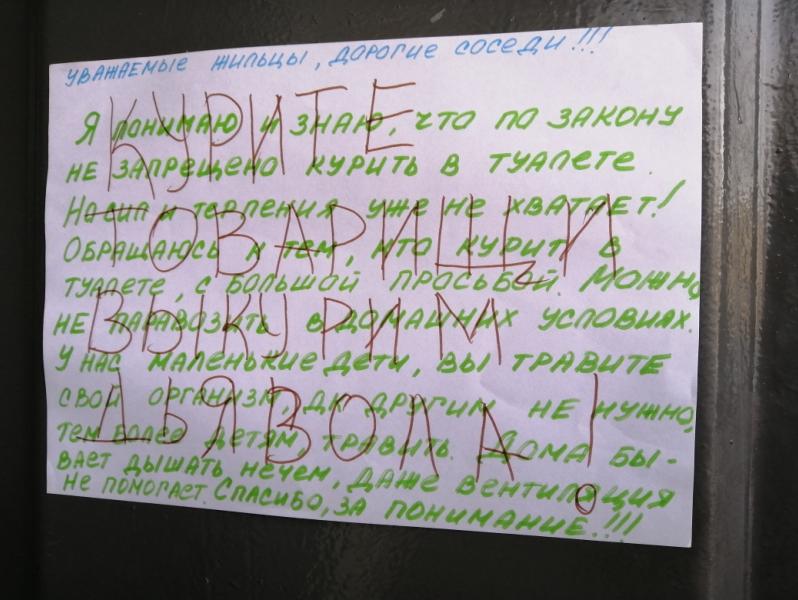 УВАЖАЕМЫЕ ЖИЛЬЦЫ, ДОРОГИЕ СОСЕДИ!!!
Я ПОНИМАЮ И ЗНАЮ, ЧТО ПО ЗАКОНУ
НЕ ЗАПРЕЩЕНО КУРИТЬ В ТУАЛЕТЕ.
НО СИЛ И ТЕРПЕНИЯ УЖЕ НЕ ХВАТАЕТ!
ОБРАЩАЮСЬ К ТЕМ, КТО КУРИТ В
ТУАЛЕТЕ, С БОЛЬШОЙ ПРОСЬБОЙ. МОЖНО
НЕ ПАРАВОЗИТЬ В ДОМАШНИХ УСЛОВИЯХ.
У НАС МАЛЕНЬКИЕ ДЕТИ, ВЫ ТРАВИТЕ
СВОЙ ОРГАНИЗМ, ДК ДРУГИМ НЕ НУЖНО,
ТЕМ БОЛЕЕ ДЕТЯМ, ТРАВИТЬ. ДОМА БЫ-
ВАЕТ ДЫШАТЬ НЕЧЕМ, ДАЖЕ ВЕНТИЛЯЦИЯ
НЕ ПОМОГАЕТ. СПАСИБО, ЗА ПОНИМАНИЕ.!!!
КУРИТЕ
ТОВАРИЩЕЙ
ВЫКУРИМ
ДЬЯВОЛА!